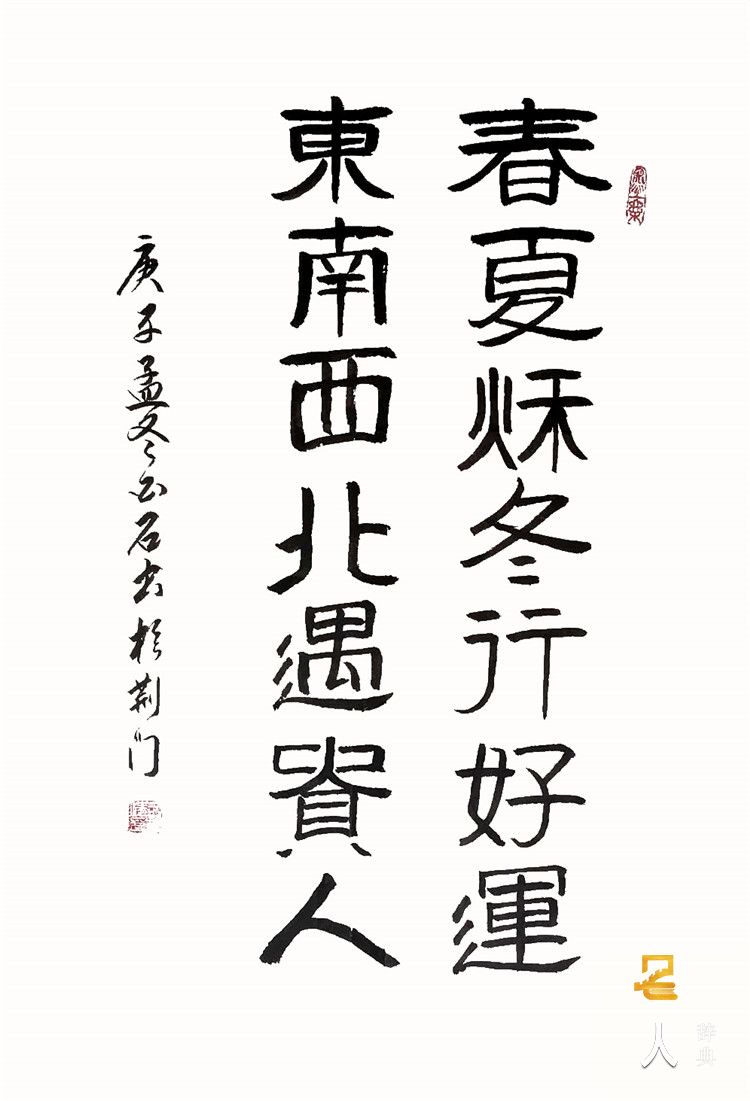 春夏秌冬行好運
東南西北遇貴人
庚子孟冬白石书於荆门
名人
辞典